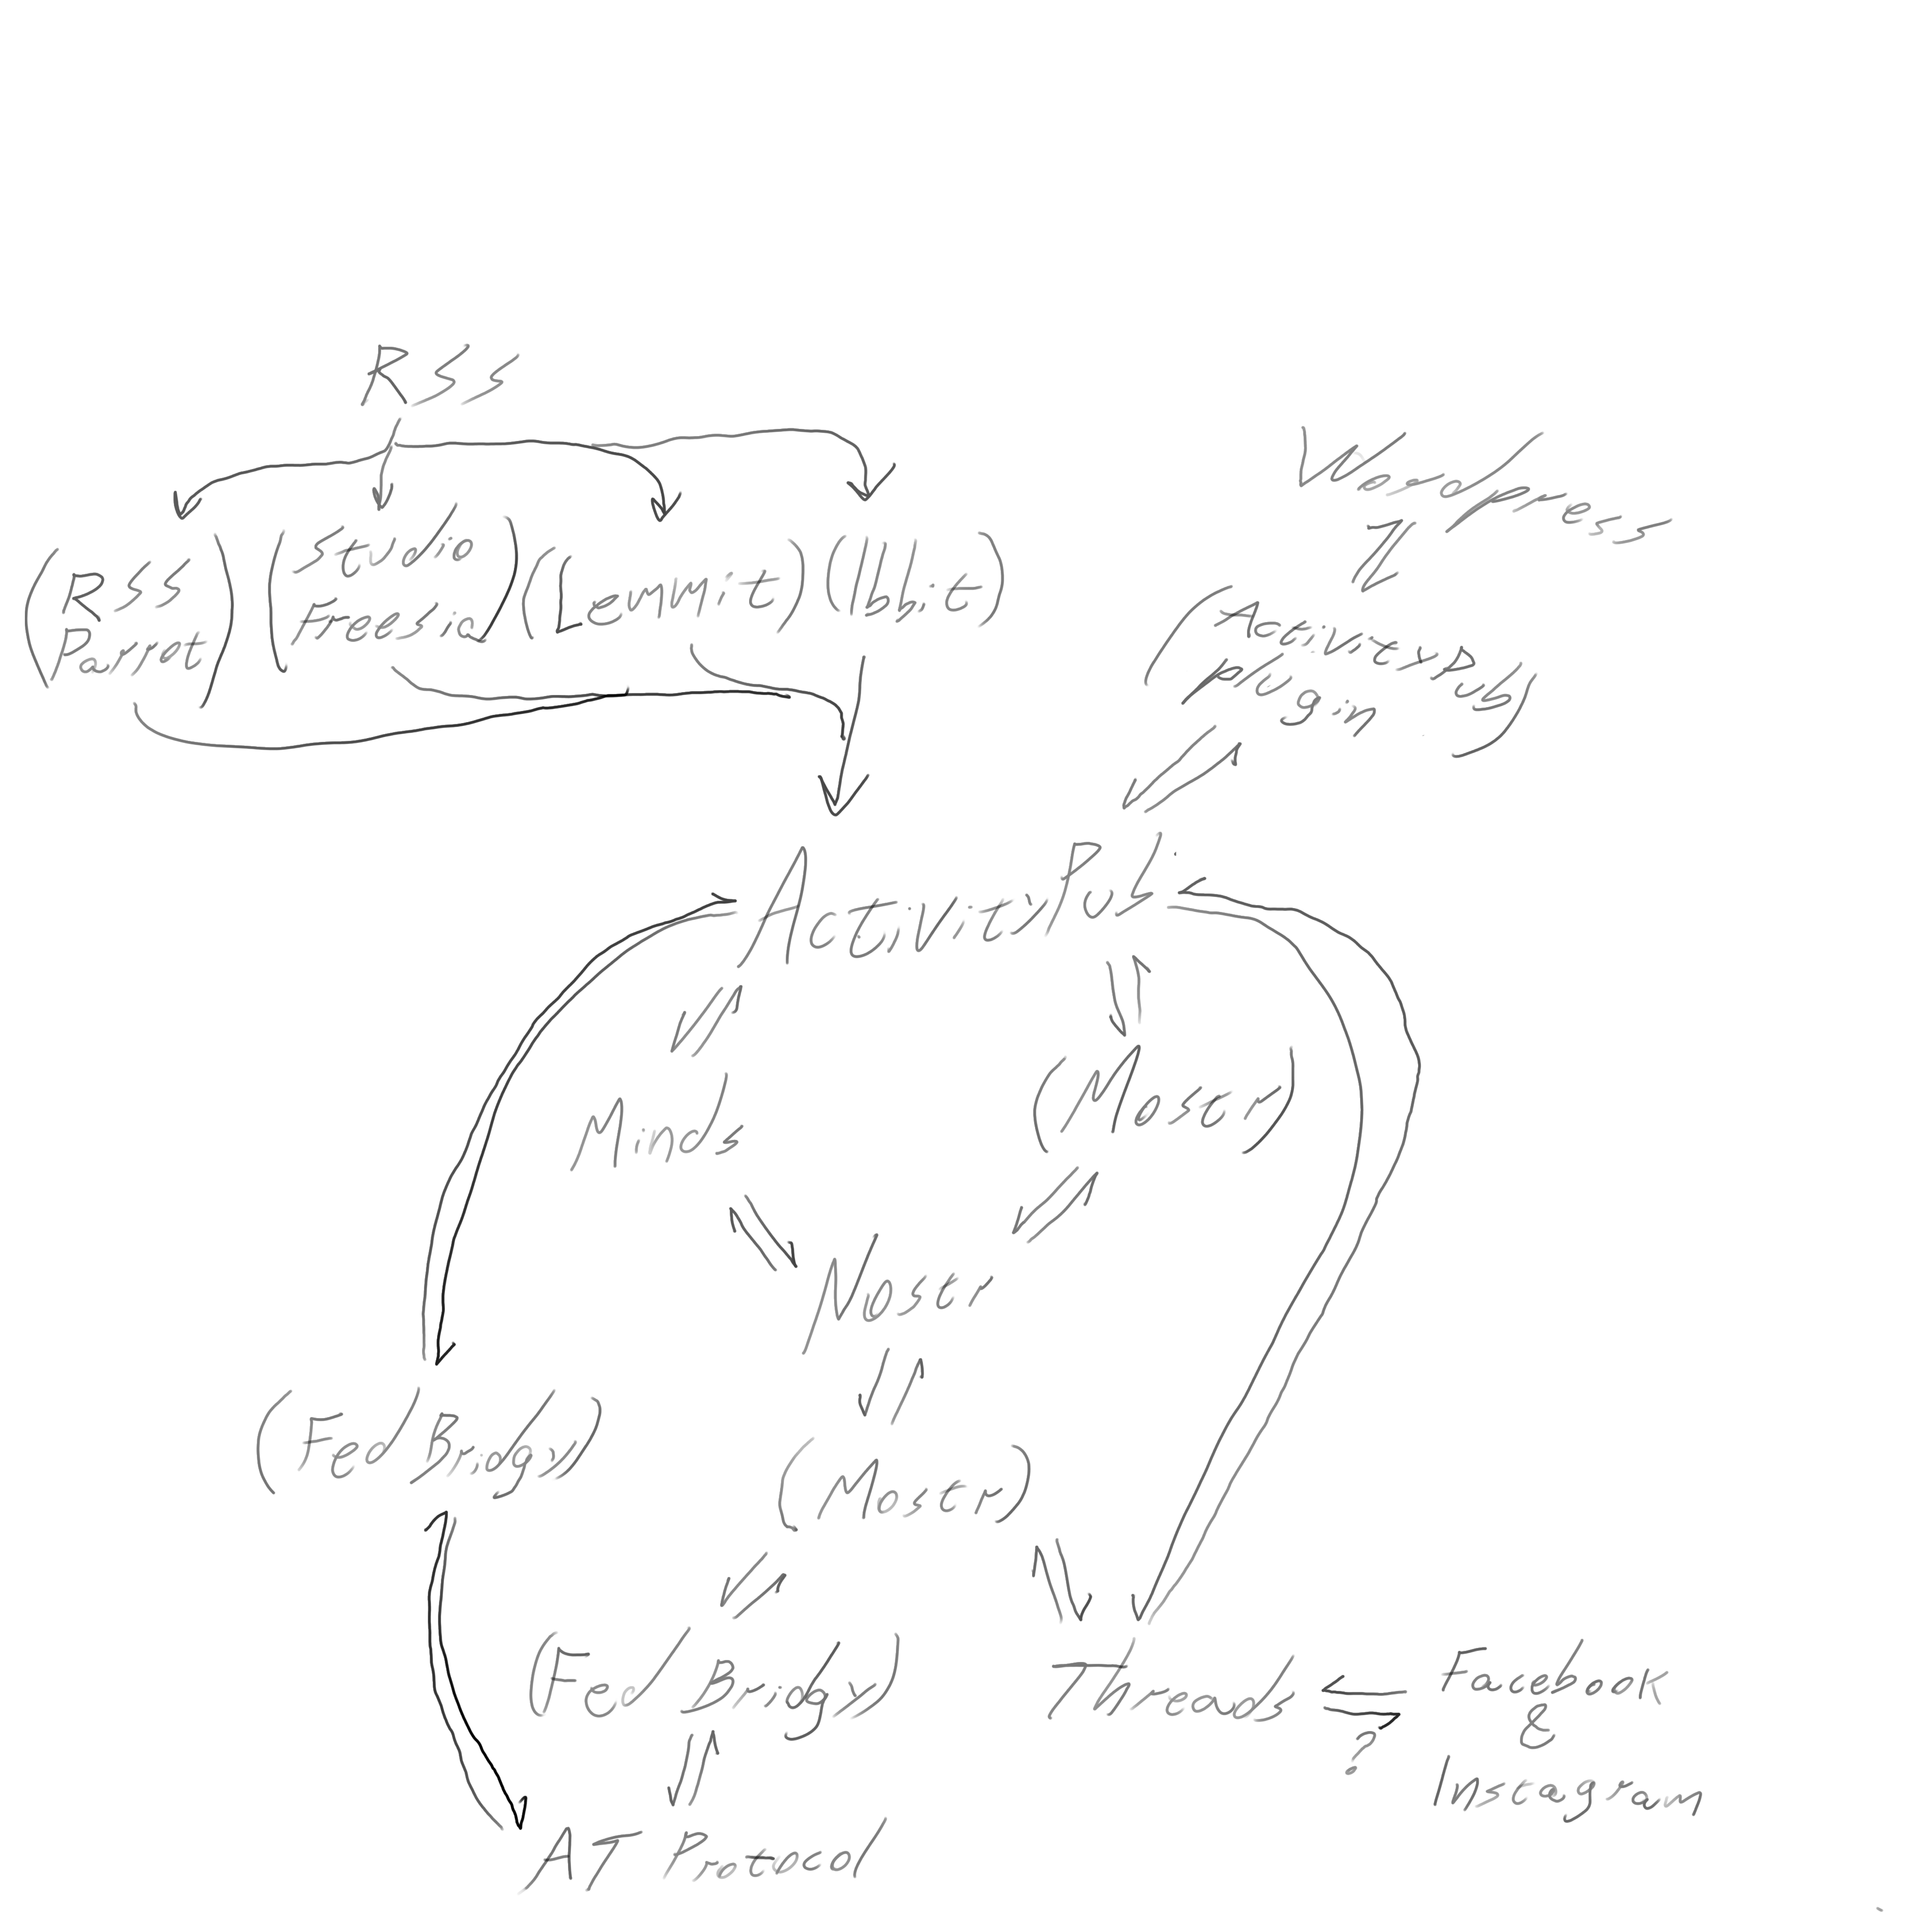 RSS
Wordpress
(RSS
Parrot)
(Studio
Freesia)
(Lemmit)
(lbbit)
(Activity Pub
Plugin)
ActivityPub
Minds
(Mostr)
Nostr
(Fed Bridgy)
(Mostr)
(Fed Bridgy)
Threads
?
Facebook
&
Instagram
AT Protocol